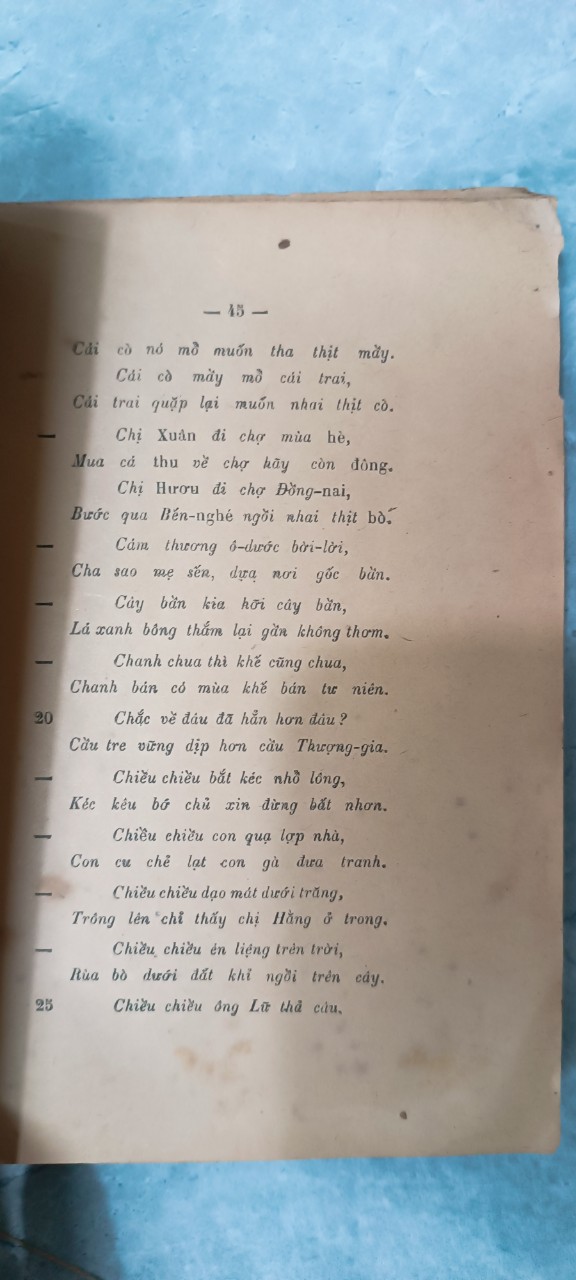 — 45 —
Cái cò nó mổ muốn tha thịt mầy.
Cái cò mầy mổ cái trai,
Cái trai quặp lại muốn nhai thịt cò.
— Chị Xuân đi chợ mùa hè,
Mua cá thu về chợ hãy còn đông.
Chị Hươu đi chợ Đồng-nai,
Bước qua Bến-nghé ngồi nhai thịt bò.
— Cám thương ô-dước bời-lời,
Cha sao mẹ sến, dựa nơi gốc bần.
— Cây bần kia hỡi cây bần,
Lá xanh bông thắm lại gần không thơm.
— Chanh chua thì khế cũng chua,
Chanh bán có mùa khế bán tư niên.
20 Chắc về đâu đã hẳn hơn đâu?
Cầu tre vững dịp hơn cầu Thượng-gia.
— Chiều chiều bắt kéc nhổ lông,
Kéc kêu bớ chủ xin đừng bất nhơn.
— Chiều chiều con quạ lợp nhà,
Con cu chẻ lạt con gà đưa tranh.
— Chiều chiều dạo mát dưới trăng,
Trông lên chỉ thấy chị Hằng ở trong.
— Chiều chiều én liệng trên trời,
Rùa bò dưới đất khỉ ngồi trên cây.
25 Chiều chiều ông Lữ thả câu,